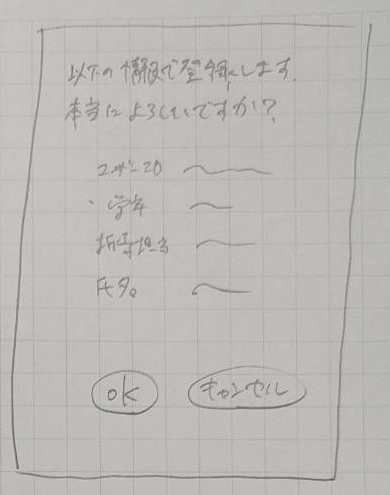 以下の情報で登録します。
本当によろしいですか?
ユーザーID
・学年
指導担当
氏名
OK
キャンセル